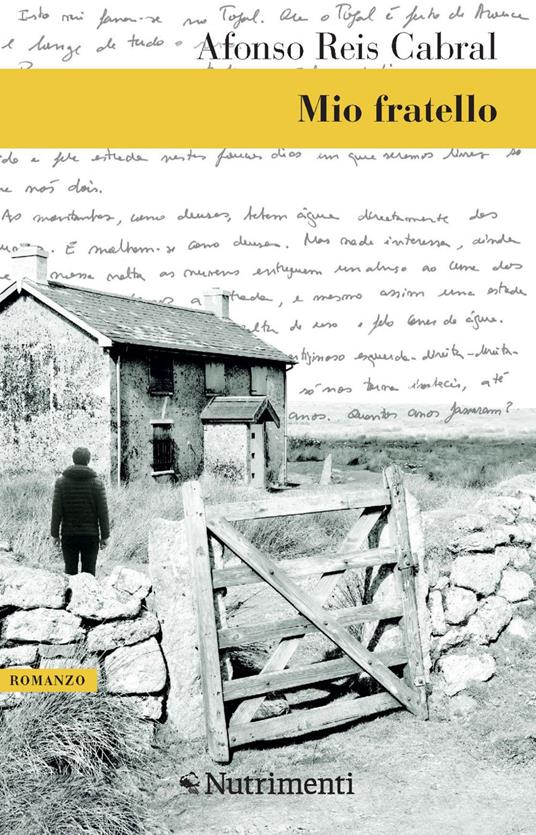 Isto
no Tojal. Que o Tojal é perto de Arouca
e longe de tudo o
Afonso Reis Cabral
Mio fratello
e pela estrada nestes poucos dias em que seremos livres só
nós dois.
As montanhas, como deuses, bebem água directamente das
É como deuses. Mas nada interessa, ainda
nessa mata as nuvens um abraço ao cume dos
a estrada, e mesmo assim uma estrada
falta de uso e pelo de água.
esquerda-direita-direita-
só nos torna até
anos. Quantos anos passaram?
ROMANZO
Nutrimenti